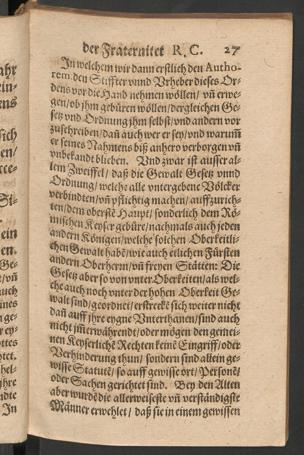 der Fraternitet R. C. 27
In welchem wir dann erstlich den Autho-
rem den Stiffter vnnd Vrheber dieses Or-
dens vor die Hand nehmen wöllen/ vn̄ erwe-
gen/ ob ihm gebüren wöllen/ dergleichen Ge-
setz vnd Ordnung ihm selbst/ vnd andern vor
zuschreiben/ dañ auch wer er sey/ vnd warum̄
er seines Nahmens biß anhero verborgen vn̄
vnbekandt blieben. Vnd zwar ist ausser al-
lem Zweiffel/ daß die Gewalt Gesetz vnnd
Ordnung/ welche alle vntergebene Völcker
verbinden/ vn̄ pflichtig machen/ auffzurich-
ten/ dem oberstē Haupt/ sonderlich dem Rö-
mischen Keyser gebüre/ nachmals auch jeden
andern Königen/ welche solchen Oberkeitli-
chen Gewalt habē/ wie auch etlichen Fürsten
andern Oberherrn/ vn̄ freyen Stätten: Die
Gesetz aber so von vnter Oberkeiten/ als wel-
che auch noch vnter der hohen Oberkeit Ge-
walt sind/ geordnet/ erstreckē sich weiter nicht
dañ auff ihre eygne Vnterthanen/ sind auch
nicht im̄erwährendt/ oder mögen den gemei-
nen Keyserlichē Rechten keinē Eingriff/ oder
Verhinderung thun/ sondern sind allein ge-
wisse Statutē/ so auff gewisse ort/ Personē/
oder Sachen gerichtet sind. Bey den Alten
aber wurdē die allerweiseste vn̄ verständigste
Männer erwehlet/ daß sie in einem gewissen